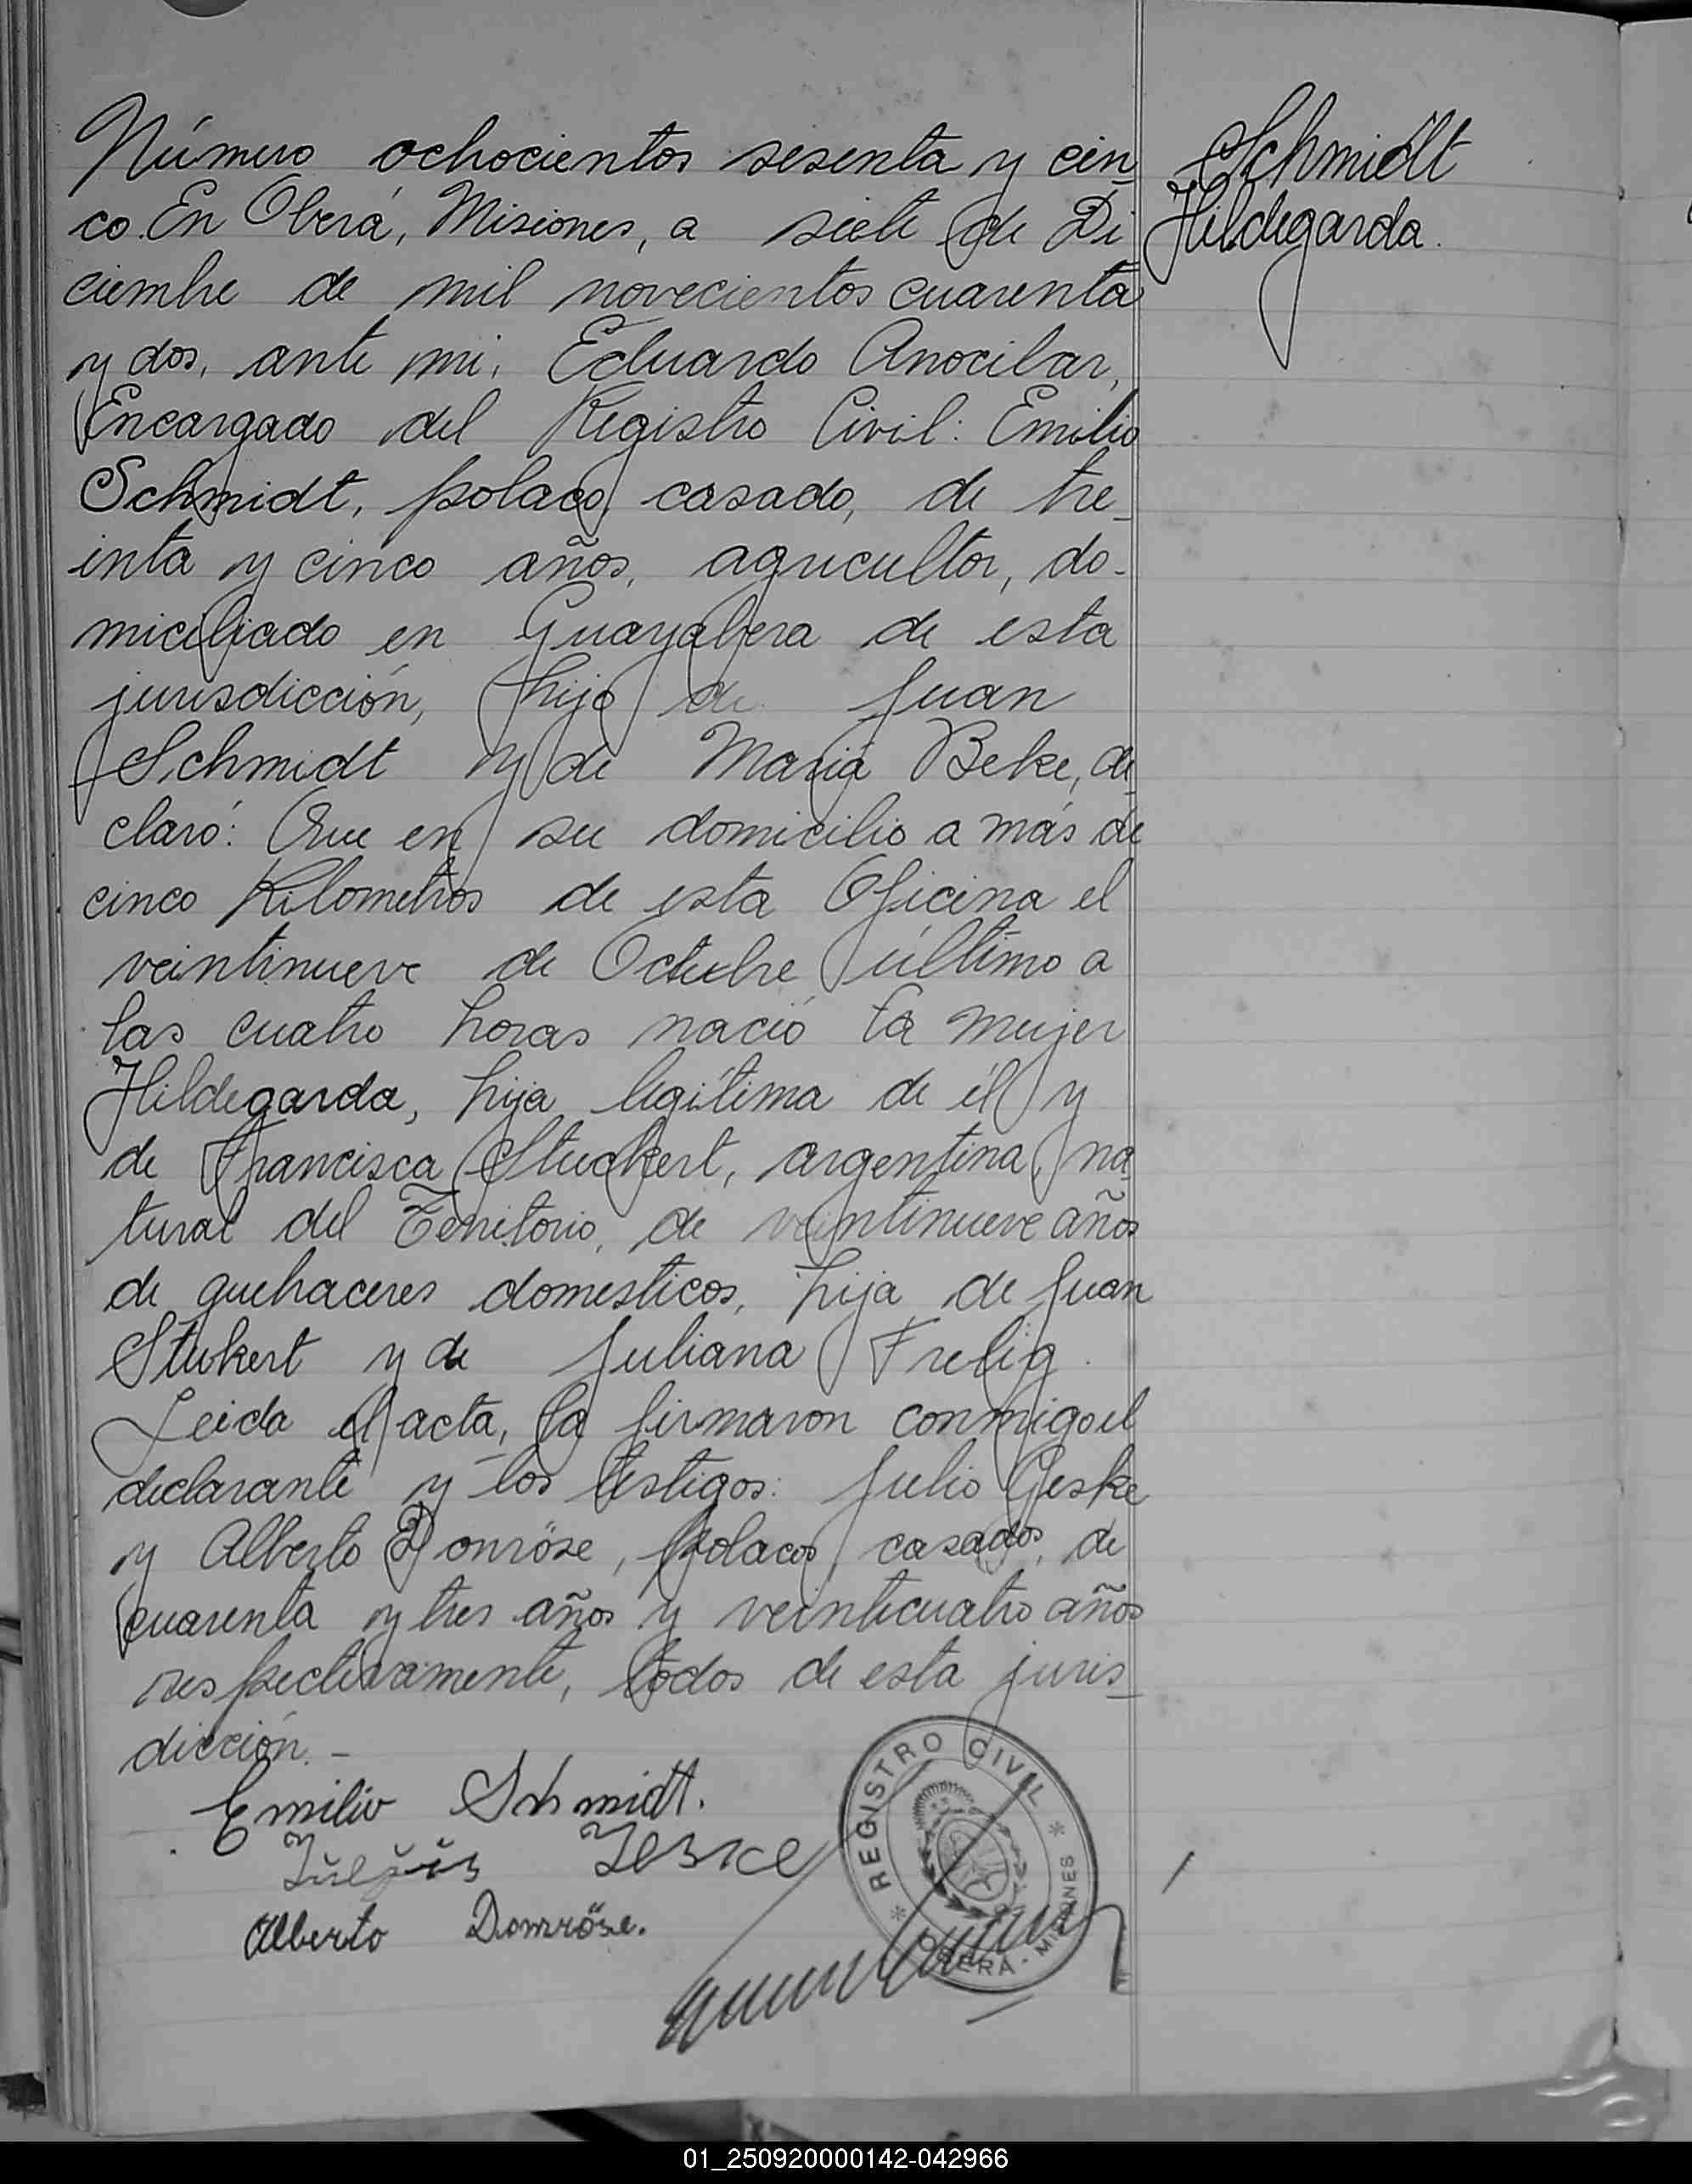 Número ochocientos sesenta y cin_
co. En Oberá, Misiones, a siete de Di
ciembre de mil novecientos cuarenta
y dos, ante mi, Eduardo Anocibar,
Encargado del Registro Civil: Emilio
Schmidt, polaco, casado, de tre_
inta y cinco años, agricultor, do-
miciliado en Guayabera de esta
jurisdicción, hijo de Juan
Schmidt y de María Beke, de_
claró: Que en su domicilio a más de
cinco Kilometros de esta Oficina el
veintinueve de Octubre último a
las cuatro horas nació la mujer
Hildegarda, hija legítima de él y
de Francisca Stuckert, argentina, na_
tural del Territorio, de veintinueve años
de quehaceres domesticos, hija de Juan
Stukert y de Juliana Frelig.
Leida el acta, la firmaron conmigo el
declarante y los testigos: Julio Geske
y Alberto Domröse, polacos, casados, de
cuarenta y tres años y veinticuatro años
respectivamente, todos de esta juris_
dicción. -
Schmidt
Hildegarda.
Emilio Schmidt.
Alberto Domröse.
REGISTRO CIVIL
* OBERÁ - MISIONES *
01_250920000142-042966